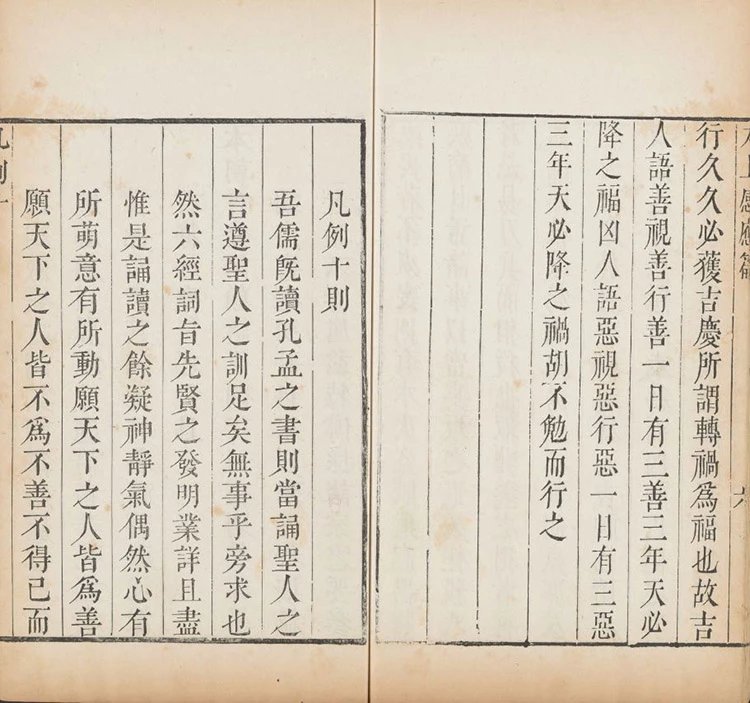 太上感應篇 六
行久久必獲吉慶所謂轉禍為福也故吉
人語善視善行善一日有三善三年天必
降之福凶人語惡視惡行惡一日有三惡
三年天必降之禍胡不勉而行之
凡例十則
吾儒旣讀孔孟之書則當誦聖人之
言遵聖人之訓足矣無事乎旁求也
然六經詞旨先賢之發明業詳且盡
惟是誦讀之餘凝神靜氣偶然心有
所萌意有所動願天下之人皆為善
願天下之人皆不為不善不得已而
凡例一